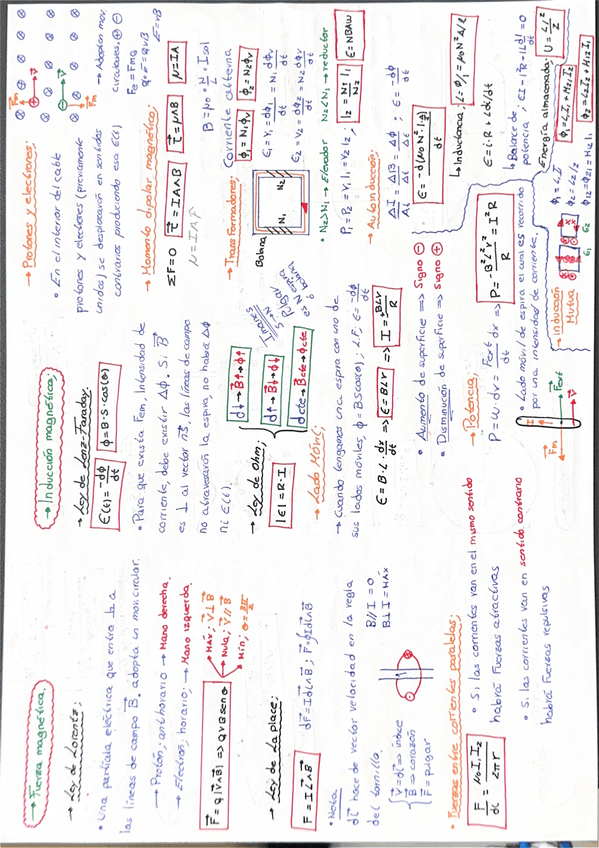 → Fuerza magnética
→ Ley de Lorentz;
• Una partícula eléctrica que entra ⊥ a
las líneas de campo B⃗. adopta un mov. circular.
→ Protón; antihorario → Mano derecha.
→ Electrón; horario; → Mano izquierda.
F⃗ = q |V⃗∧B⃗| => qVB senθ
MÁX; V⃗⊥B⃗
Nula; V⃗//B⃗
→ Ley de Laplace;
F⃗ = I L⃗∧B⃗
dF⃗ = I dL⃗∧B⃗ ; F⃗ = ∫I dL⃗∧B⃗
• Nota
dl⃗ hace de vector velocidad en la regla
del tornillo.
V⃗ = dl⃗ => índice
B⃗ => corazón
F⃗ = pulgar
B//I = 0
B⊥I = MÁX
• Fuerzas entre corrientes paralelas;
F/dL = μ₀I₁I₂/2πr
• Si las corrientes van en el mismo sentido
habrá fuerzas atractivas
• Si las corrientes van en sentido contrario
habrá fuerzas repulsivas
→ Inducción magnética;
→ Ley de Lenz-Faraday
Є(t) = -dϕ/dt
ϕ = B·S·cos(θ)
• Para que exista Fem, Intensidad de
corriente, debe existir Δϕ. Si B⃗
es ⊥ al vector n⃗s, las líneas de campo
no atravesarán la espira, no habrá Δϕ
ni Є(t).
→ Ley de Ohm;
|Є| = R·I
d↓→B⃗↑→ϕ↑
d↑→B⃗↓→ϕ↓
d cte→B⃗cte→ϕcte
Imanes
S→N
→ Lado Móvil;
→ Cuando tengamos una espira con uno de
sus lados móviles, ϕ = BScos(θ); L.F; Є = -dϕ/dt
Є = B·L·dx/dt => Є = BLV => I = ±BLV/R
• Aumento de superficie => Signo ⊖
• Disminución de superficie => Signo ⊕
→ Potencia;
P = W·dv = Fext/dt dx => P = -B²L²V²/R = I²R
• Lado móvil de espira el cual es recorrido
por una intensidad de corriente,
F⃗m
I
F⃗ext
V⃗
→ Protones y electrones;
• En el interior del cable
protones y electrones (previamente
unidos) se desplazarán en sentidos
contrarios produciendo esa Є(t)
F⃗m
V⃗
V⃗
F⃗m
→ Adoptan mov.
circulares, ⊕ ⊖
Fe = Fmg
q·E = qVB
E = VB
→ Momento dipolar magnético;
ΣF = 0
τ⃗ = IA∧B
τ⃗ = μ∧B
μ = IA
B = μ₀ · N/L · Isol
→ Transformadores;
Bobina
N₁
N₂
Corriente alterna
ϕ₁ = N₁ϕv
ϕ₂ = N₂ϕv
Є₁ = V₁ = dϕ₁/dt = N₁ dϕv/dt
Є₂ = V₂ = dϕ₂/dt = N₂ dϕv/dt
• N₂>N₁ → Elevador
N₂<N₁ → reductor
P₁ = P₂ = V₁I₁ = V₂I₂ ;
I₂ = N₁/N₂ I₁
Є = NBAω
→ Autoinducción;
ΔI/Δt = ΔB/Δt = Δϕ/Δt ; Є = -dϕ/dt
↳ Inductancia
Є = i·R + Ldi/dt
↳ Balance de
potencia; ЄI = I²R + ILdI/dt = 0
Energía almacenada;
→ inducción
Mutua
Є₁
Є₂
ϕ₁ = L·I